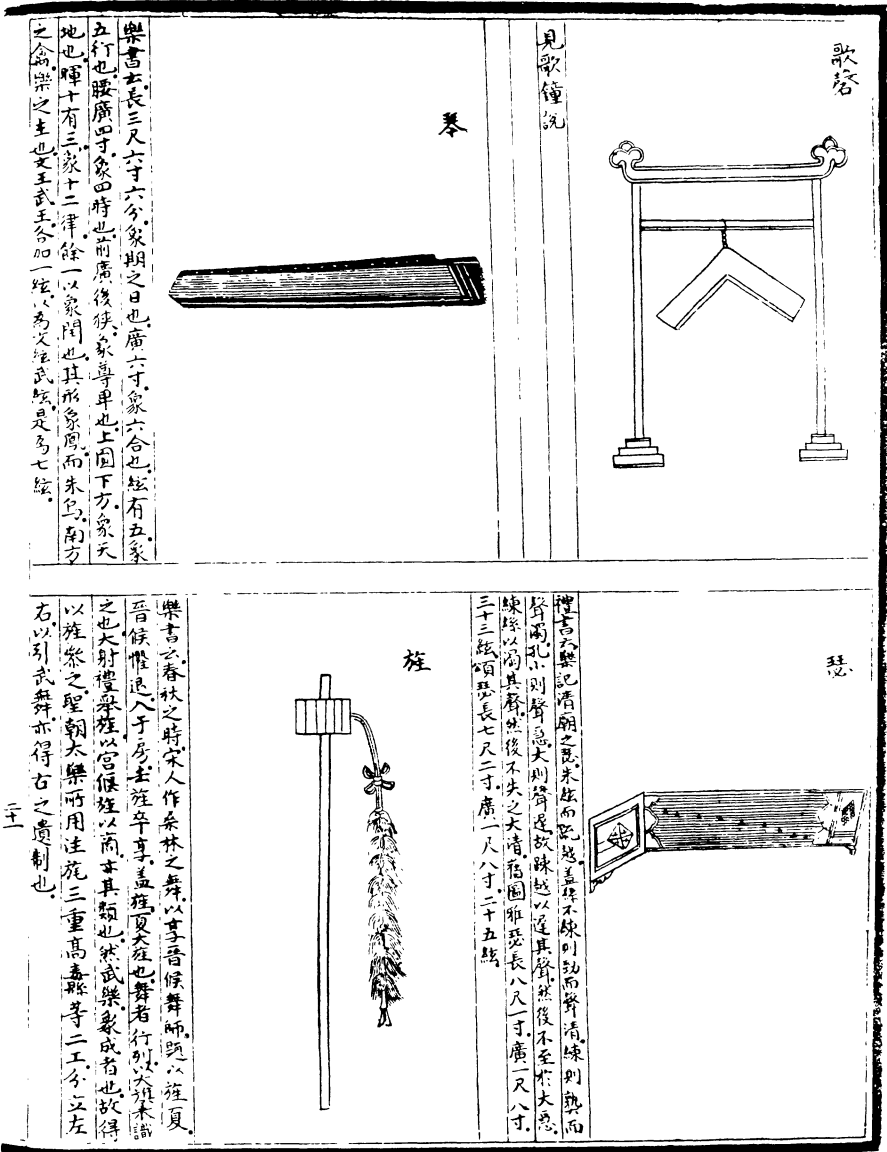 歌磬
見歌鐘說
琴
樂書云長三尺六寸六分象期之日也廣六寸象六合也絃有五象
五行也腰廣四寸象四時也前廣後狹象尊卑也上圓下方象天
地也暉十有三象十二律餘一以象閏也其形象鳳而朱鳥南方
之禽樂之主也文王武王各加一絃以為文絃武絃是為七絃
瑟
禮書云樂記清廟之瑟朱絃而疏越蓋絲不練則勁而聲清練則熟而
聲濁孔小則聲急大則聲遲故疎越以遲其聲然後不至於大急
練絲以濁其聲然後不失之大清舊圖雅瑟長八尺一寸廣一尺八寸
三十三絃頌瑟長七尺二寸廣一尺八寸二十五絃
旌
樂書云春秋之時宋人作桑林之舞以享晉侯舞師題以旌夏
晉侯懼退入于房去旌卒享蓋旌夏大旌也舞者行列以大旗表識
之也大射禮舉旌以宮偃旌以商亦其類也然武樂象成者也故得
以旌參之聖朝太樂所用注旄三重高纛縣等二工分立左
右以引武舞亦得古之遺制也
二十一